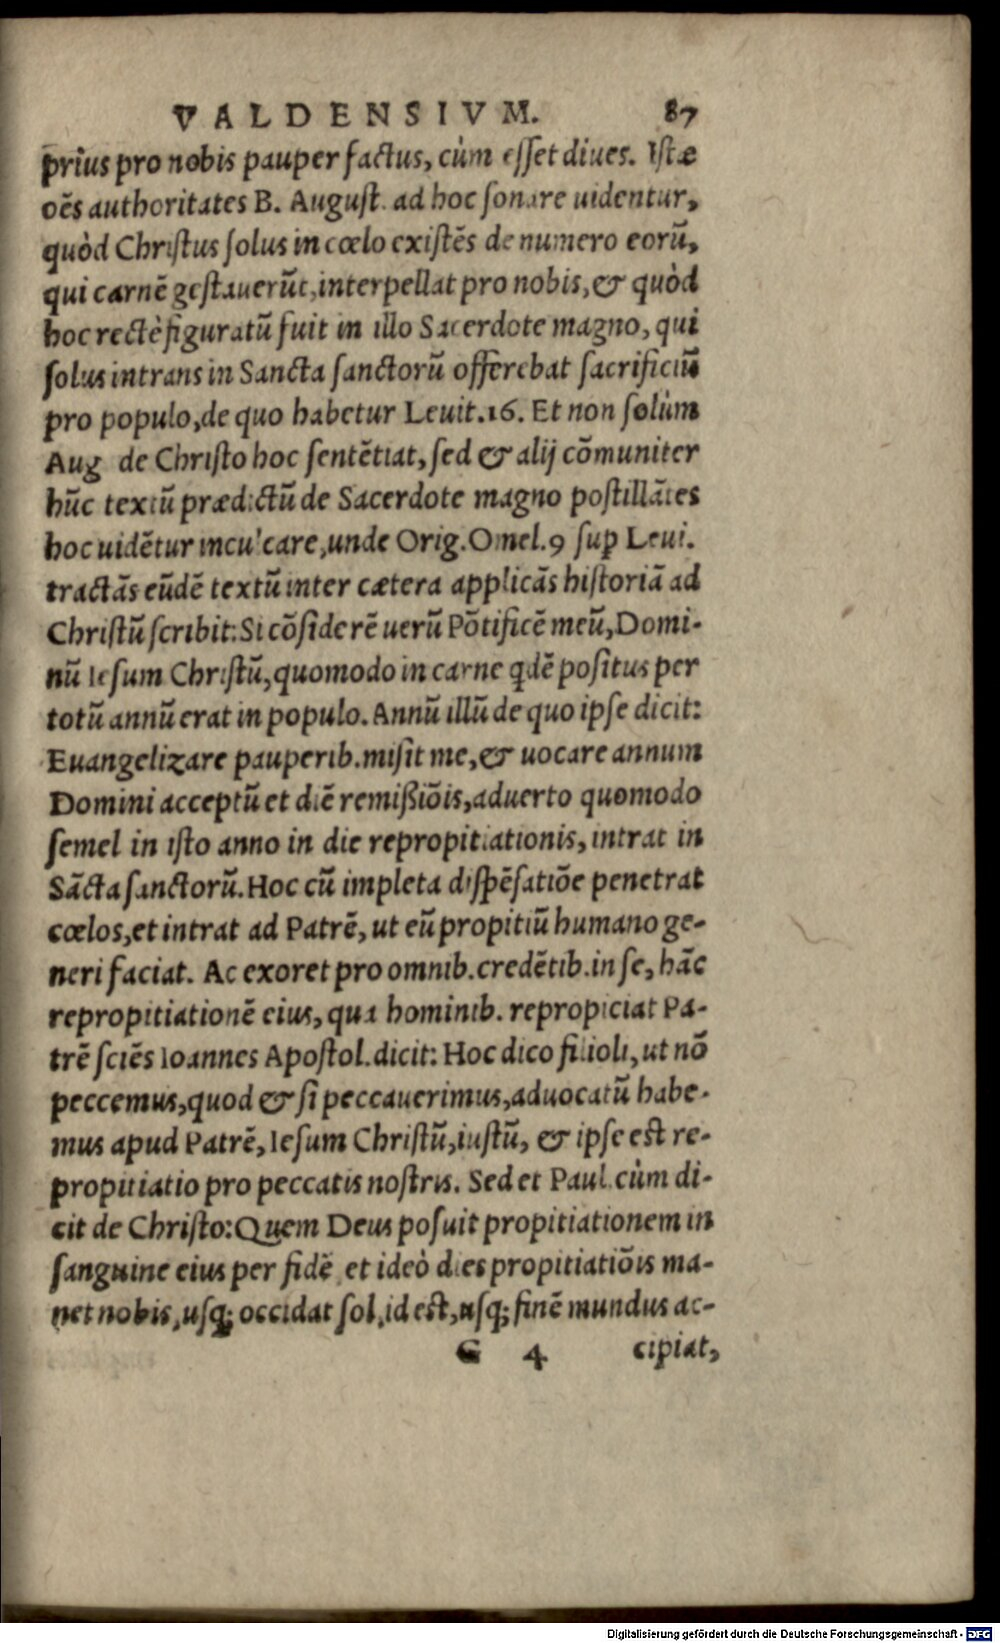 VALDENSIVM. 87
prius pro nobis pauper factus, cùm eſſet diues. Iſtæ
oẽs authoritates B. Auguſt. ad hoc ſonare uidentur,
quòd Chriſtus ſolus in cœlo exiſtẽs de numero eorũ,
qui carnẽ geſtauerũt, interpellat pro nobis, & quòd
hoc rectè figuratũ fuit in illo Sacerdote magno, qui
ſolus intrans in Sancta ſanctorũ offerebat ſacrificiũ
pro populo, de quo habetur Leuit. 16. Et non ſolùm
Aug de Chriſto hoc ſentẽtiat, ſed & alij cõmuniter
hũc textũ prædictũ de Sacerdote magno poſtillãtes
hoc uidẽtur inculcare, unde Orig. Omel. 9 ſup Leui.
tractãs eũdẽ textũ inter cætera applicãs hiſtoriã ad
Chriſtũ ſcribit: Si cõſiderẽ uerũ Põtificẽ meũ, Domi-
nũ Ieſum Chriſtũ, quomodo in carne qdẽ poſitus per
totũ annũ erat in populo. Annũ illũ de quo ipſe dicit:
Euangelizare pauperib. miſit me, & uocare annum
Domini acceptũ et diẽ remißiõis, aduerto quomodo
ſemel in iſto anno in die repropitiationis, intrat in
Sãcta ſanctorũ. Hoc cũ impleta diſpẽſatiõe penetrat
cœlos, et intrat ad Patrẽ, ut eũ propitiũ humano ge-
neri faciat. Ac exoret pro omnib. credẽtib. in ſe, hãc
repropitiationẽ eius, qua hominib. repropiciat Pa-
trẽ ſciẽs Ioannes Apoſtol. dicit: Hoc dico filioli, ut nõ
peccemus, quod & ſi peccauerimus, aduocatũ habe-
mus apud Patrẽ, Ieſum Chriſtũ, iuſtũ, & ipſe eſt re-
propitiatio pro peccatis noſtris. Sed et Paul. cùm di-
cit de Chriſto: Quem Deus poſuit propitiationem in
ſanguine eius per fidẽ, et ideò dies propitiatiõis ma-
net nobis, uſq; occidat ſol, id eſt, uſq; finẽ mundus ac-
G 4 cipiat,
Digitalisierung gefördert durch die Deutsche Forschungsgemeinschaft - DFG